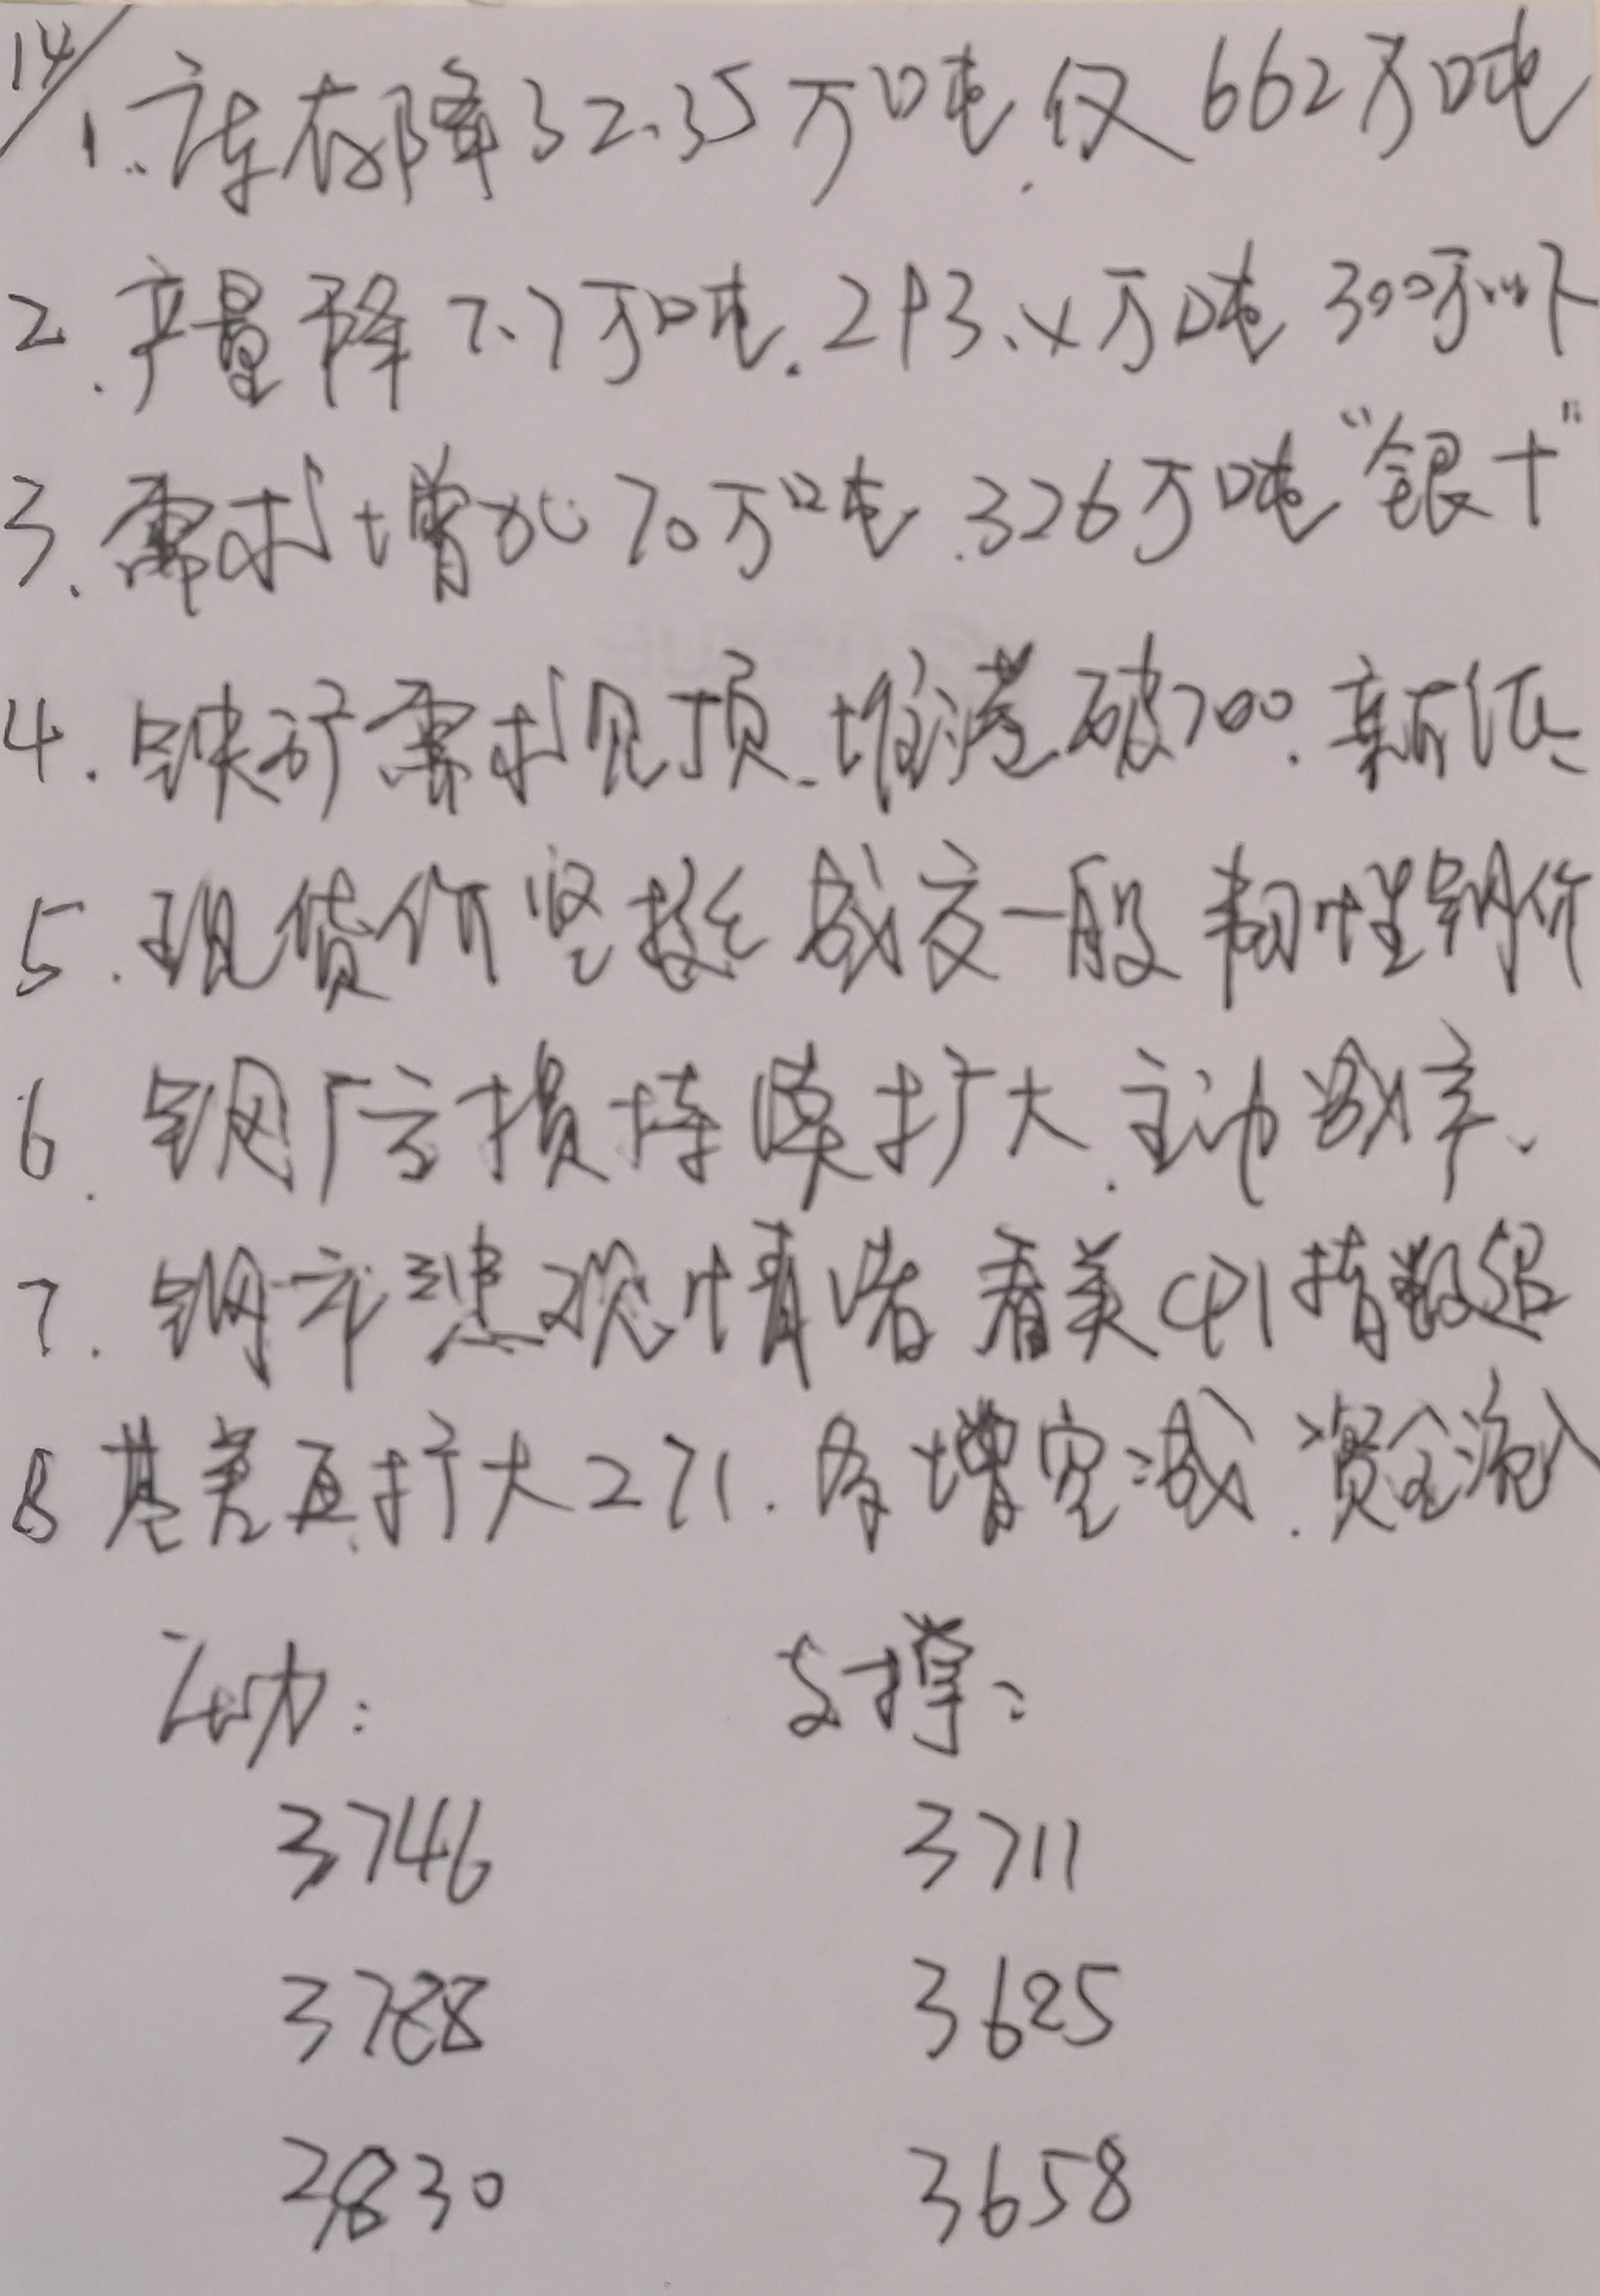 14/
1.库存降32.35万吨.仅662万吨
2.产量降7.7万吨.293.x万吨 300万以下
3.需求增加70万吨.326万吨"银十"
4.铁矿需求见顶.堆港破700.新低
5.现货价坚挺 成交一般 韧性钢价
6.钢厂亏损持续扩大.主动减产.
7.钢市悲观情绪 看美CPI指数超
8 基差再扩大271.多增空减.资金流入
压力: 支撑:
3746 3711
3788 3625
3830 3658